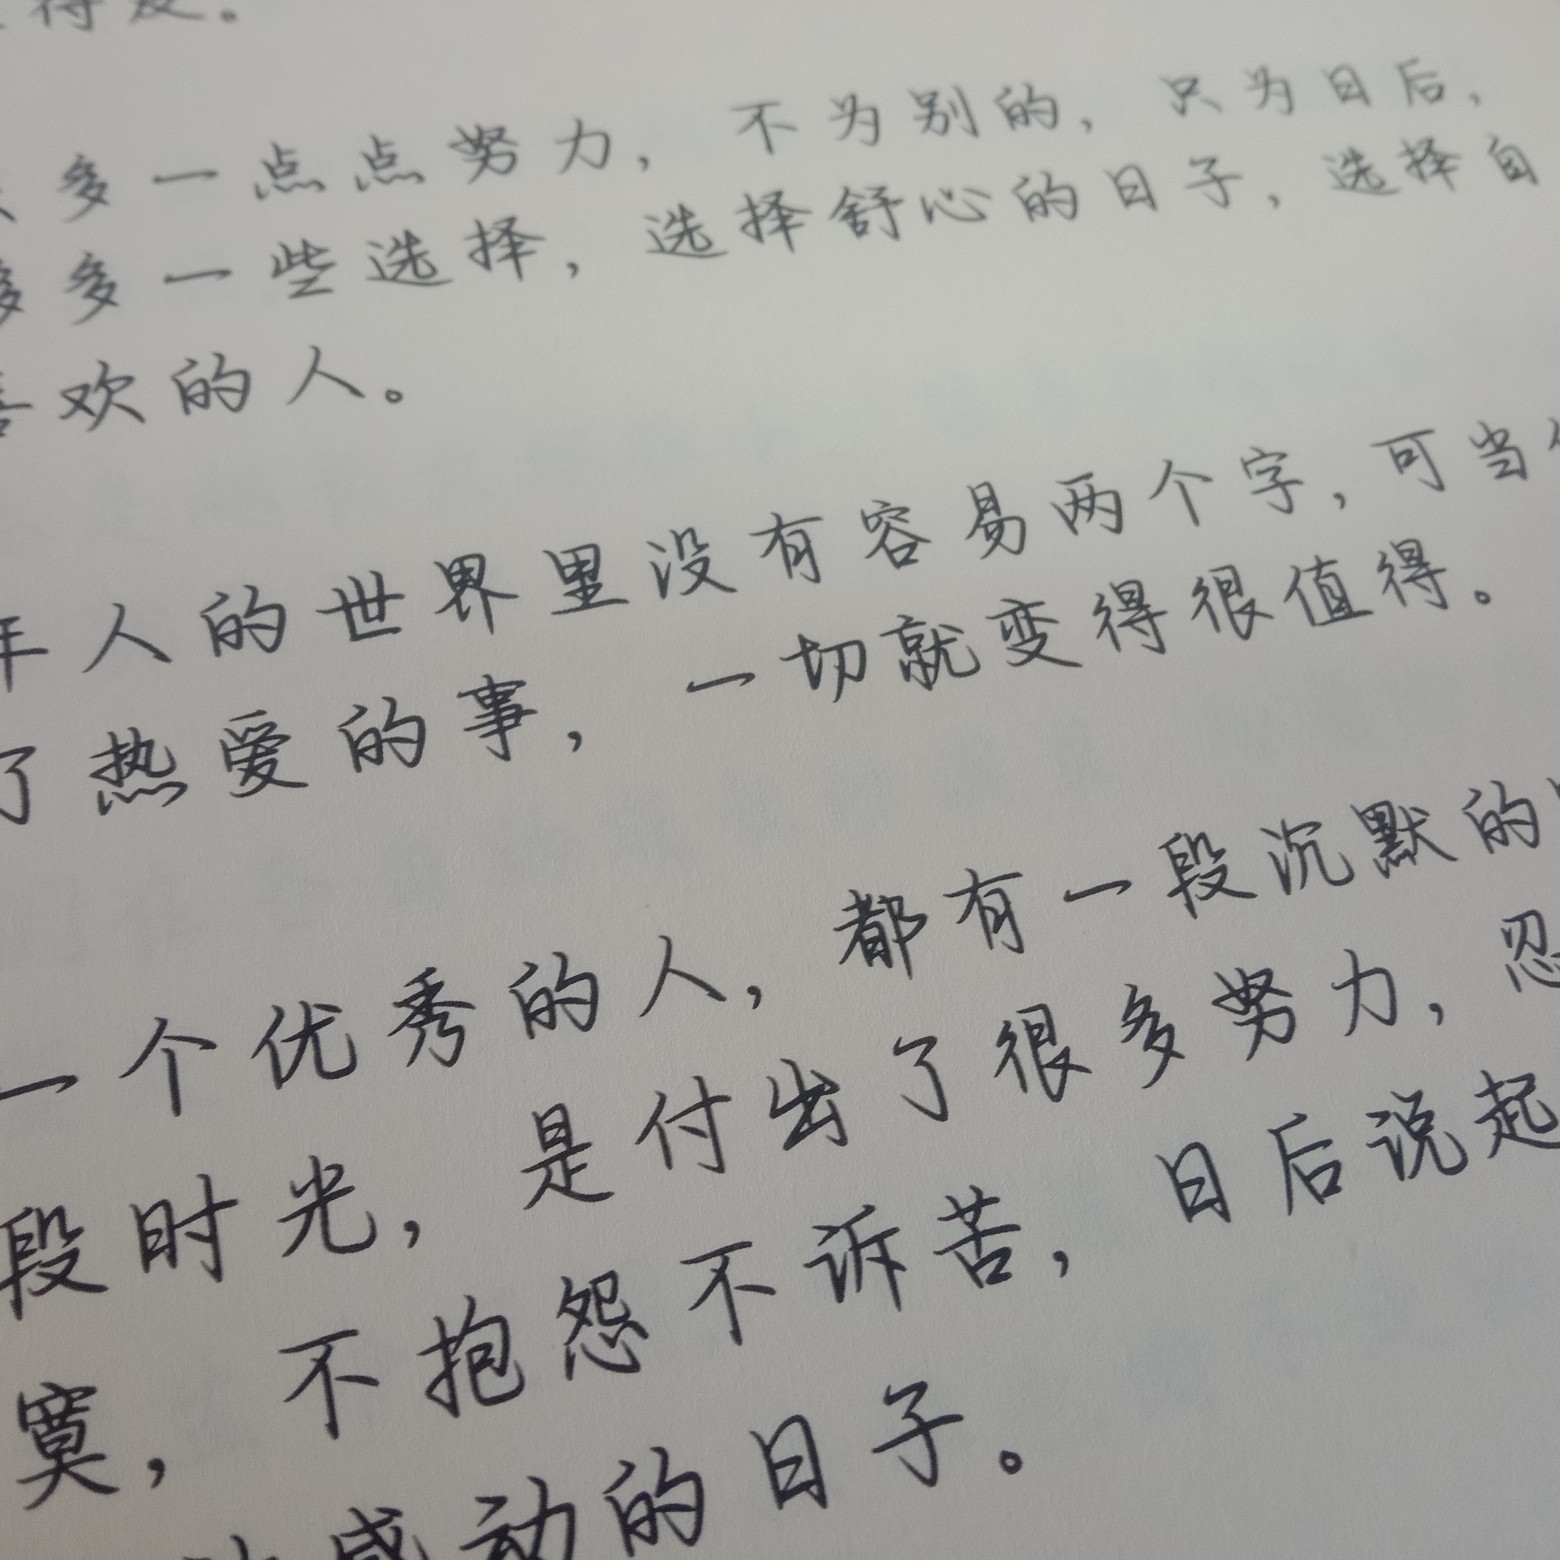 得友。
多一点点努力，不为别的，只为日后，
够多一些选择，选择舒心的日子，选择自
喜欢的人。
年人的世界里没有容易两个字，可当
了热爱的事，一切就变得很值得。
一个优秀的人，都有一段沉默的
段时光，是付出了很多努力，忍
寞，不抱怨不诉苦，日后说起
感动的日子。